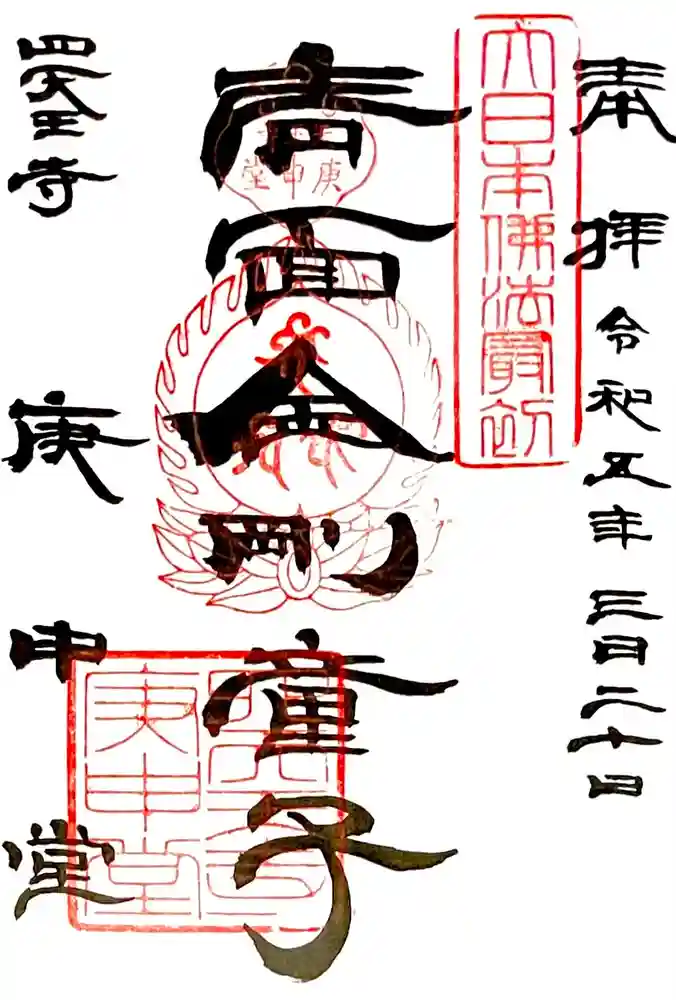 奉拝 令和五年三月二十日
大日本佛法最初
青面金剛童子
庚申堂
四天王寺 庚申堂
庚申堂